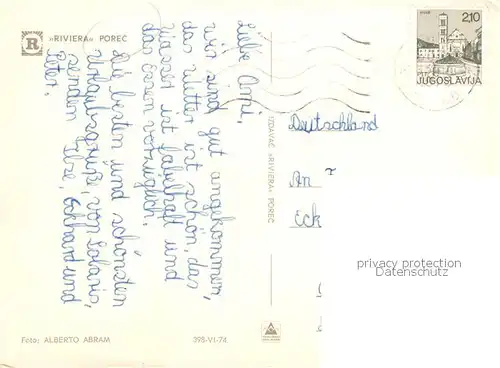 R «RIVIERA» POREČ
Liebe Omi,
wir sind gut angekommen,
das Wetter ist schön, das
Wasser ist fabelhaft und
das Essen vorzüglich.
Die besten und schönsten
Urlaubsgrüße, von
senden Ilse, Eckhard und
Peter.
IZDAVAČ «RIVIERA» POREČ
Foto: ALBERTO ABRAM
398-VI-74
2,10
JUGOSLAVIJA
Deutschland
An
Eck
privacy protection
Datenschutz